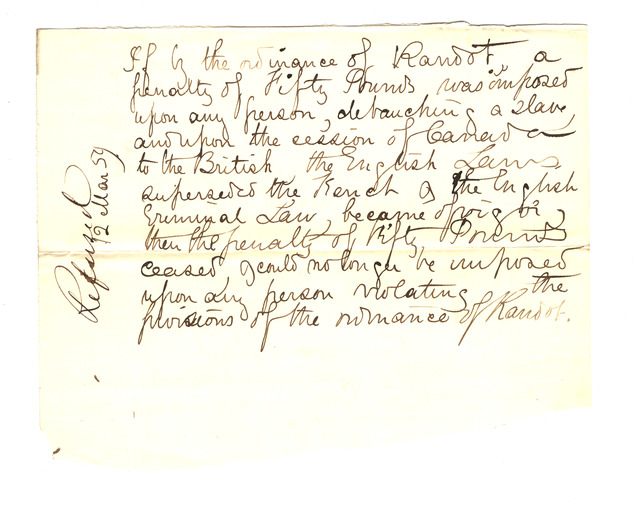 If by the ordinance of Randot, a
penalty of Fifty Pounds was imposed
upon any person, debauching a slave,
and upon the session of Canada
to the British the English Laws
superseded the French & the English
Criminal Law, became
then the penalty of Fifty Pounds
ceased & could no longer be imposed
upon any person violating the
provisions of the ordinance of Randot.
Refused
12 Mar 59